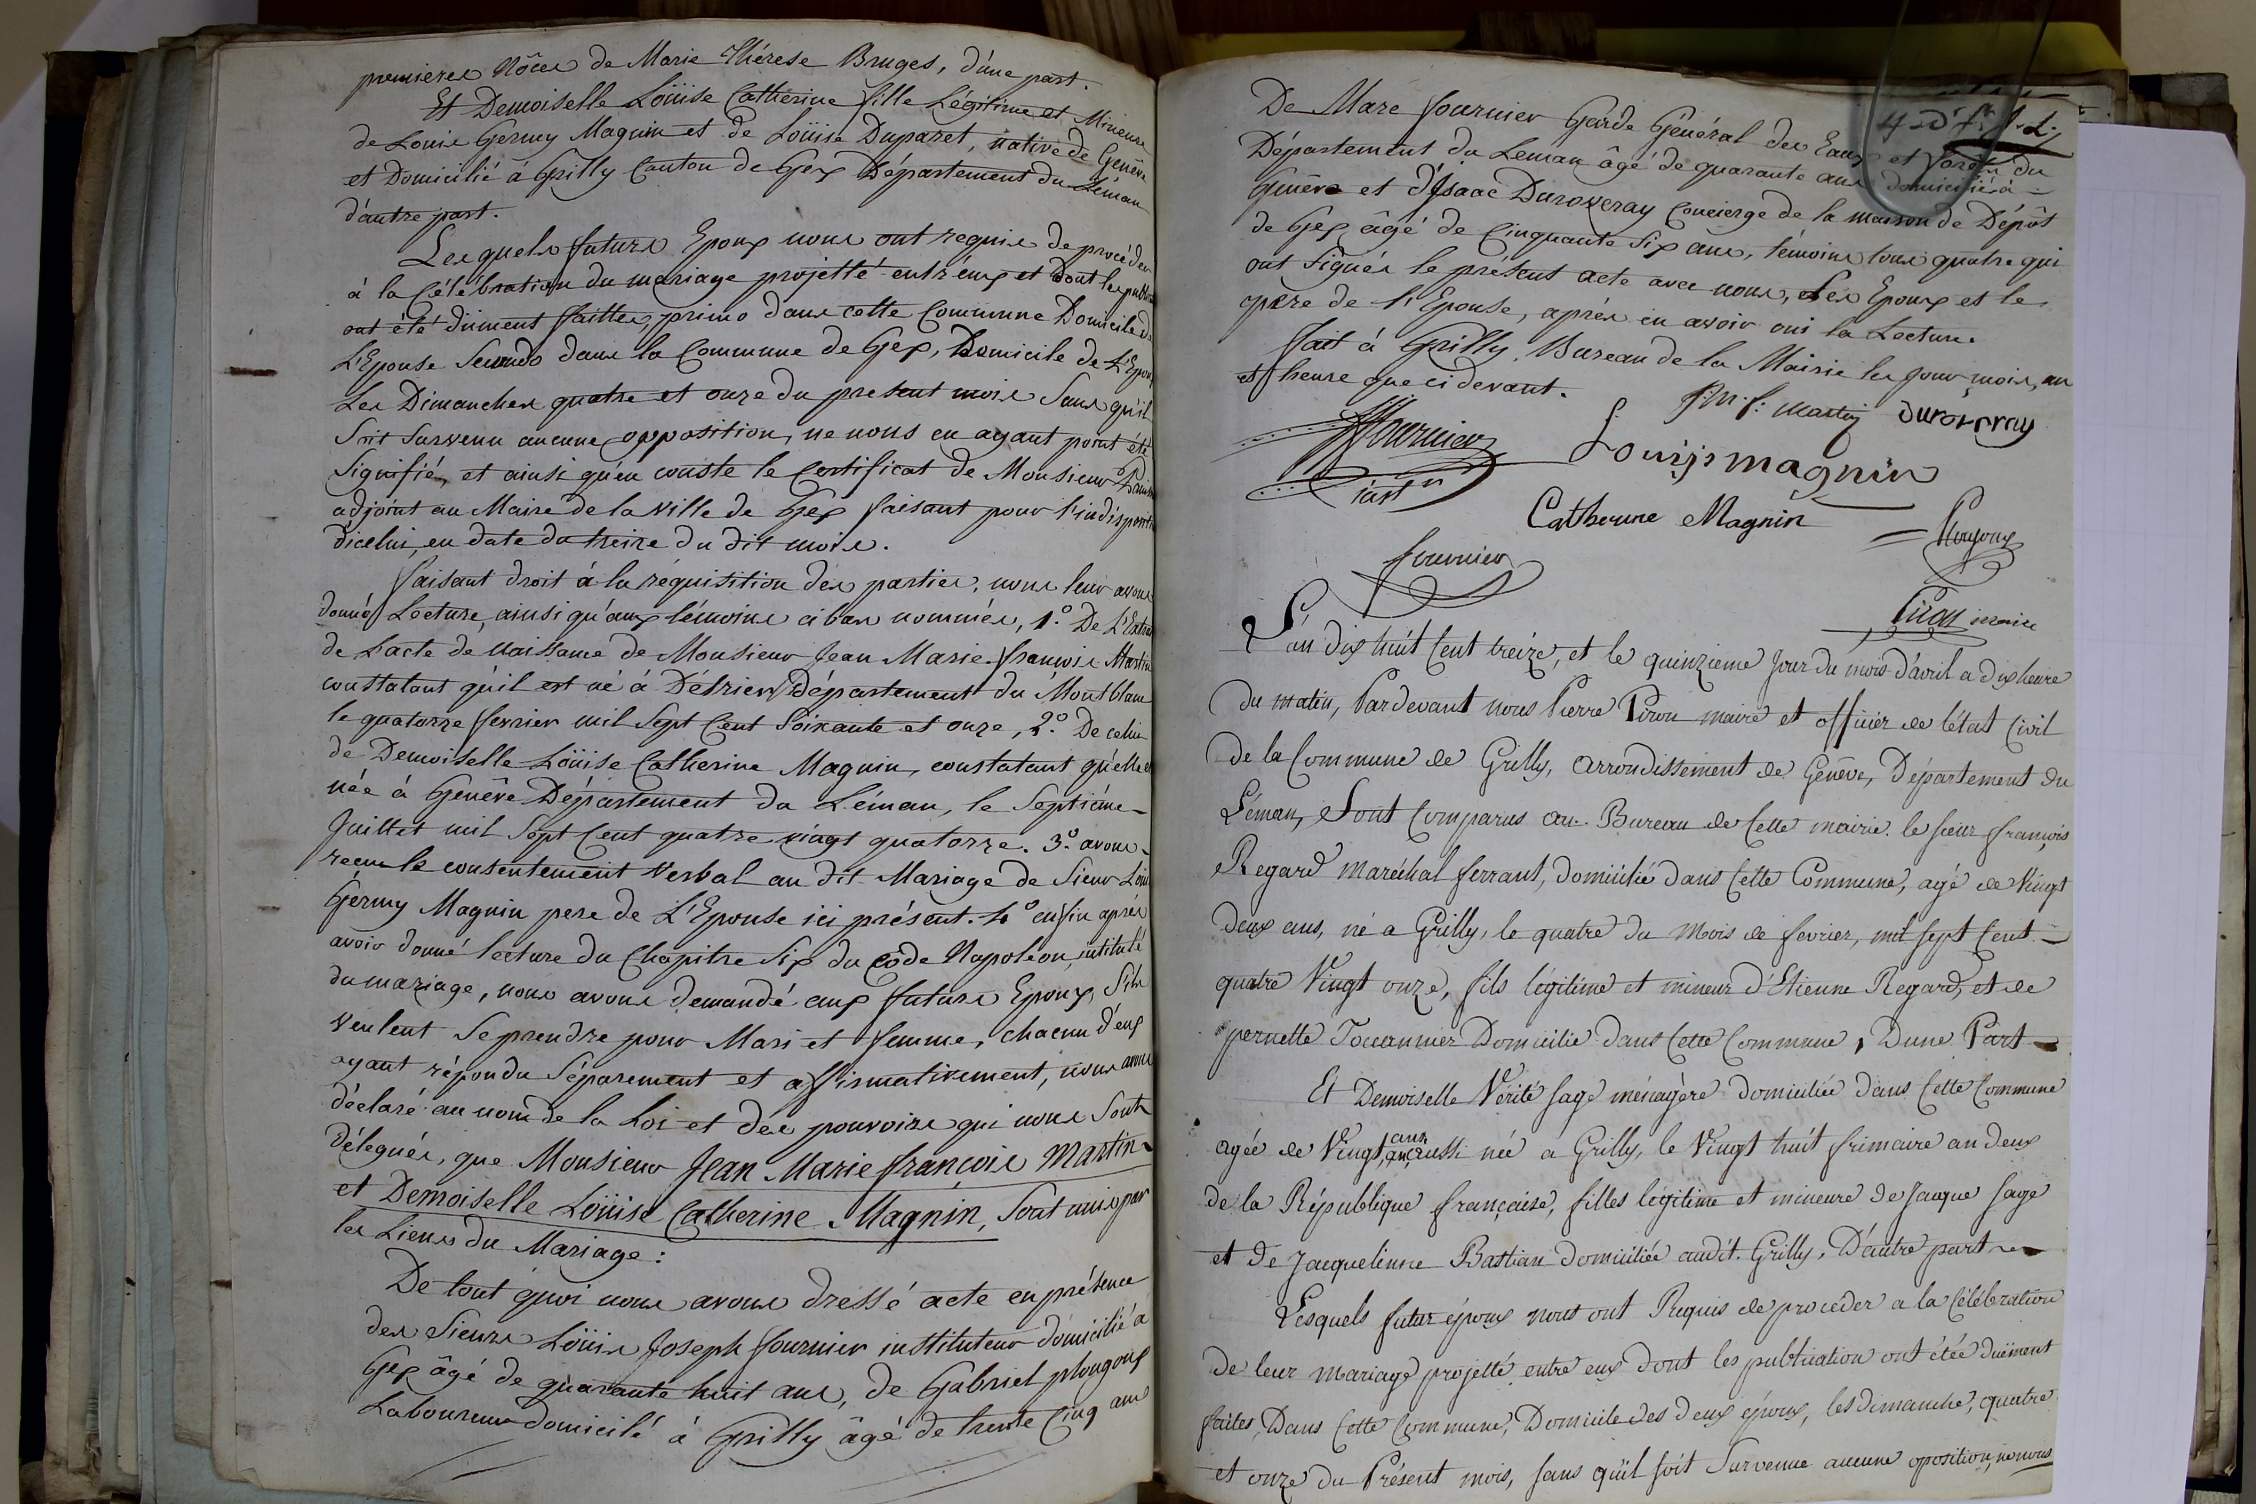 premieres Nôces de Marie Thérese Bruges, d'une part.
Et Demoiselle Loüise Catherine fille Légitime et Mineure
de Louis Germy Magnin et de Loüise Duparet, native de Genêve
et Domicilié à Grilly Canton de Gex Département du Léman
d'autre part.
Lesquels futurs Epoux nous ont requis de procéder
à la Célébration du mariage projetté entr'eux et dont les publi
ont été düment faittes, primo dans cette Commune Domicile de
L'Epouse Secundo dans la Commune de Gex, Domicile de L'Epoux
Les Dimanches quatre et onze du present mois Sans qu'il
Soit Survenu aucune opposition, ne nous en ayant point été
Signifié, et ainsi qu'en conste le Certificat de Monsieur
adjoint au Maire de la Ville de Gex faisant pour l'indispositi
d'icelui, en date du treize du dit mois.
faisant droit à la réquisition des parties, nous leur avons
donné Lecture, ainsi qu'aux témoins ci bas nommés, 1.° De L'Extrait
de Lacte de naissance de Monsieur Jean Marie françois Martin
constatant qu'il est né à Détrier département du Montblanc
le quatorze fevrier mil Sept Cent Soixante et onze, 2.° De celui
de Demoiselle Loüise Catherine Magnin, constatant qu'elle e
née à Genêve Département du Léman, le Septième
Juillet mil Sept Cent quatre vingt quatorze. 3.° avons
reçu le consentement Verbal au dit Mariage de Sieur Loui
Germy Magnin pere de L'Epouse ici présent. 4.° enfin après
avoir donné lecture du Chapitre Six du Côde Napoléon, intitulé
du mariage, nous avons demandé aux futurs Epoux, S'ils
veulent Se prendre pour Mari et femme, chacun d'eux
ayant répondu Séparement et affirmativement, nous avons
déclaré au nom de la Loi et des pouvoirs qui nous Sont
délegués, que Monsieur Jean Marie françois Martin
et Demoiselle Loüise Catherine Magnin, Sont unis par
les Liens du Mariage:
De tout quoi nous avons dressé acte en présence
des Sieurs Loüis Joseph fournier instituteur domicilié à
Gex âgé de quarante huit ans, de Gabriel plongoux
Laboureur domicilé à Grilly âgé de trente Cinq ans
De Marc fournier Garde Général des Eaux et forets du
Département du Leman âgé de quarante ans domicilié à
Genêve et d'Isaac Duroveray Concierge de la maison de Dépôt
de Gex âgé de Cinquante Six ans, témoins tous quatre qui
ont Signés le présent acte avec nous, Les Epoux et le
pere de l'Epouse, après en avoir oui la Lecture.
fait à Grilly, Bureau de la Mairie les jour mois, an
et heure que ci devant.
J. M. f. Martin Duroveray
fournier
Louijs magnin
Catherine Magnin
fournier
Piron maire
L'an dix huit Cent treize, et le quinzieme Jour du mois d'avril a dix heure
du matin, Pardevant nous Pierre Piron maire et officier de l'état Civil
de la Commune de Grilly, arrondissement de Genêve, Département du
Léman, Sont Comparus au Bureau de Cette mairie le sieur françois
Regard maréchal ferrant, domicilié dans Cette Commune, agé de Vingt
deux ans, né a Grilly, le quatre du Mois de fevrier, mil sept Cent
quatre Vingt onze, fils légitime et mineur d'Etienne Regard, et de
pernette Domicilie dans Cette Commune, Dune Part
Et Demoiselle Vérité sage ménagère domiciliée dans Cette Commune
agée de Vingt ans aussi née a Grilly, le Vingt huit frimaire an deux
de la République française, filles légitime et mineure de Jaque sage
et de Jacquelinne Bastian domiciliée audit Grilly, D'autre part
Lesquels futur époux nous ont Requis de procéder a la Célébration
de leur mariage projetté entre eux dont les publication ont étée düement
faites, Dans Cette Commune, Domicile des deux époux, les dimanche, quatre
et onze du Présent mois, sans qu'il soit Survenue aucune oposition, ne nous